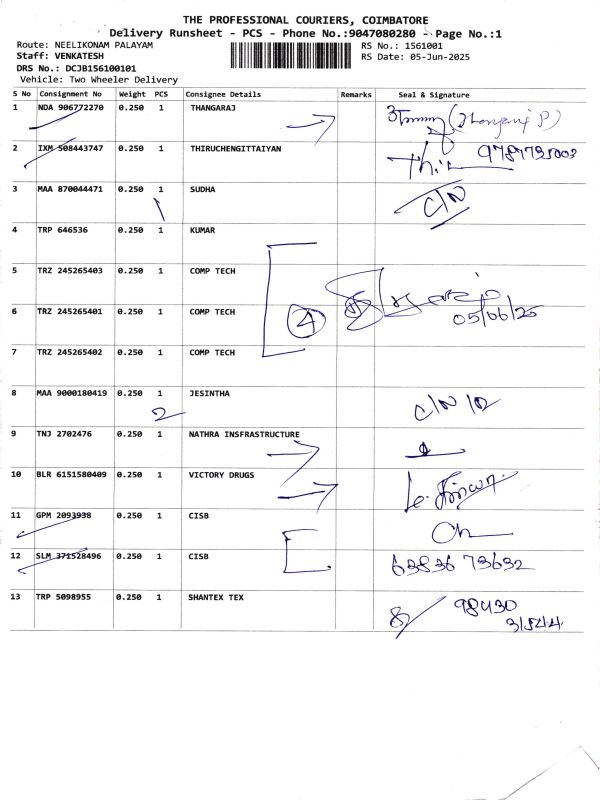 THE PROFESSIONAL COURIERS, COIMBATORE
Delivery Runsheet - PCS - Phone No.:9047080280 - Page No.:1
Route: NEELIKONAM PALAYAM
RS No.: 1561001
Staff: VENKATESH
RS Date: 05-Jun-2025
DRS No.: DCJB156100101
Vehicle: Two Wheeler Delivery
S No Consignment No Weight PCS Consignee Details Remarks Seal & Signature
1 NDA 906772270 0.250 1 THANGARAJ
2 IXM 508443747 0.250 1 THIRUCHENGITTAIYAN
3 MAA 870044471 0.250 1 SUDHA C/N
4 TRP 646536 0.250 1 KUMAR
5 TRZ 245265403 0.250 1 COMP TECH
6 TRZ 245265401 0.250 1 COMP TECH 4 05/06/25
7 TRZ 245265402 0.250 1 COMP TECH
8 MAA 9000180419 0.250 1 JESINTHA
2
9 TNJ 2702476 0.250 1 NATHRA INSFRASTRUCTURE
10 BLR 6151580409 0.250 1 VICTORY DRUGS
11 GPM 2093938 0.250 1 CISB
12 SLM 371528496 0.250 1 CISB 63836 73632
13 TRP 5098955 0.250 1 SHANTEX TEX 98430